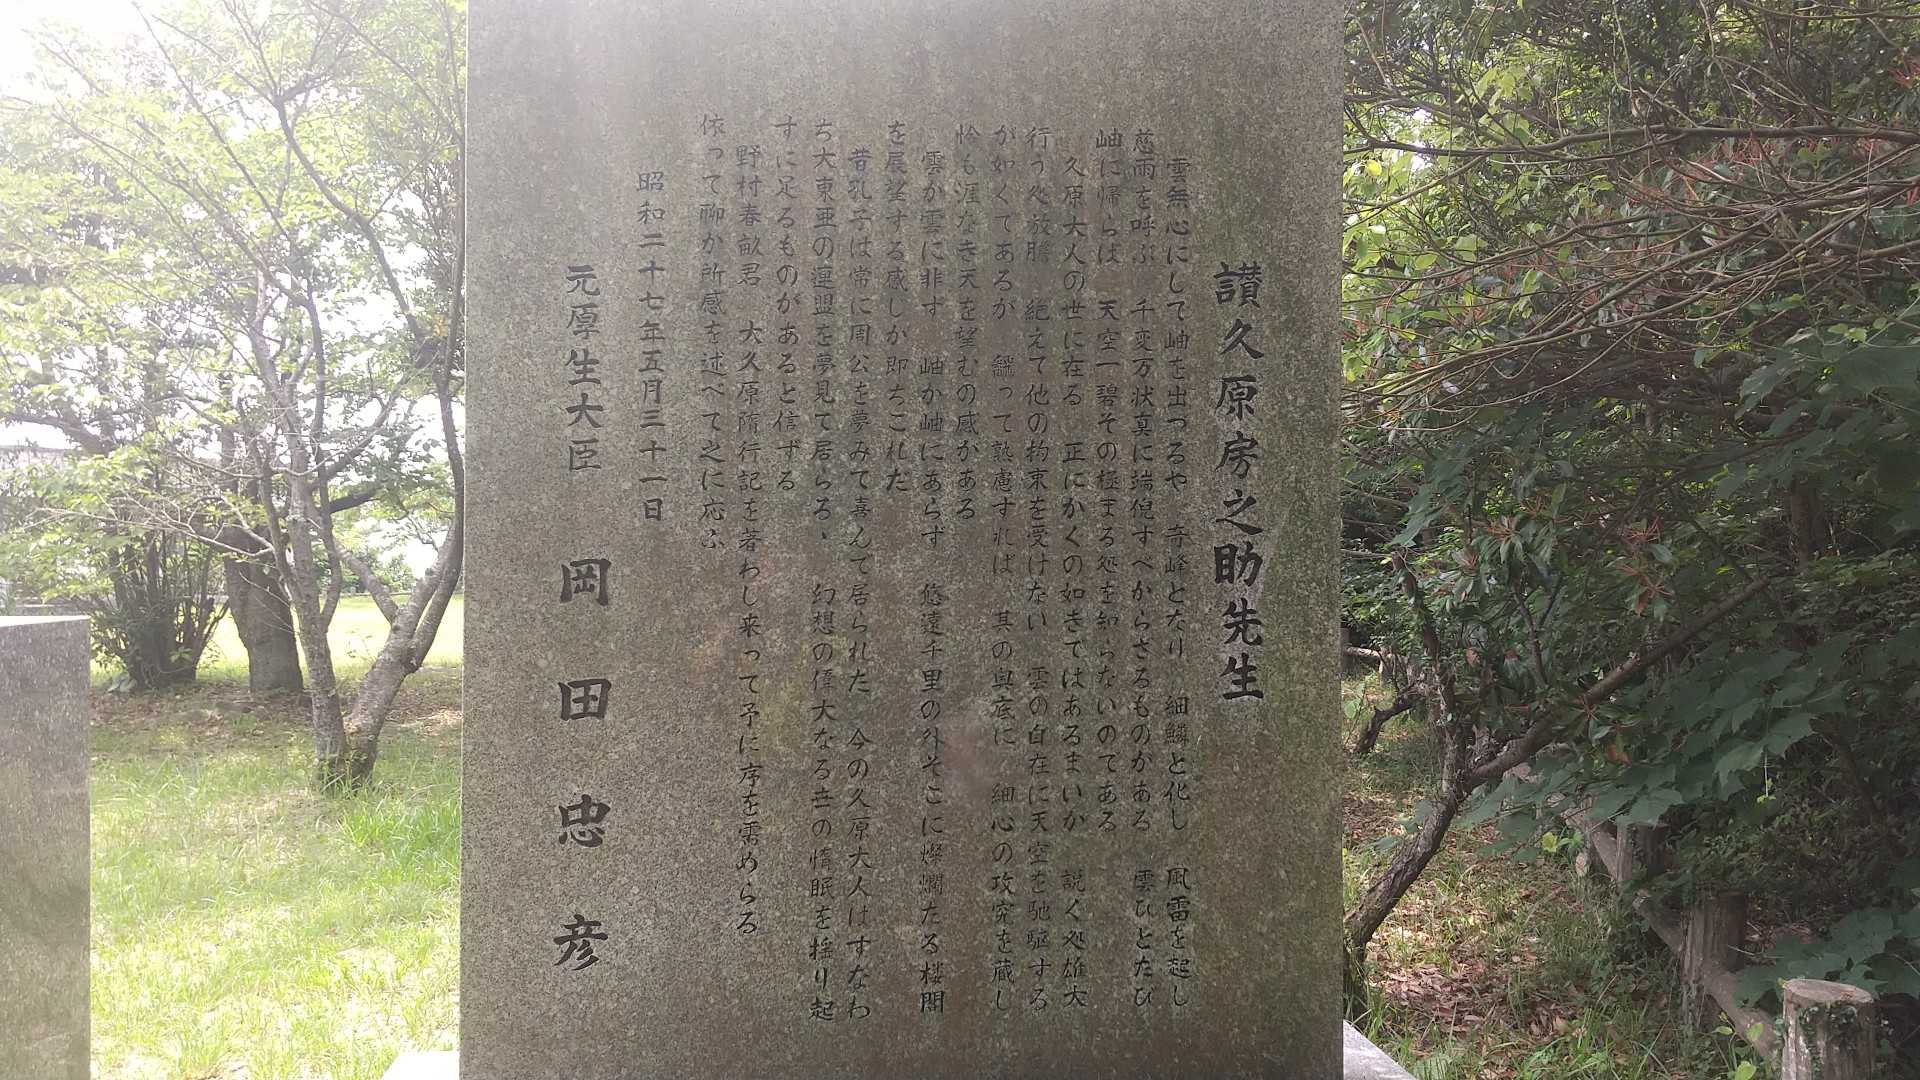 讃久原房之助先生
雲無心にして岫を出つるや 奇峰となり 細鱗と化し 風雷を起し
慈雨を呼ぶ 千変万状真に端倪すべからさるものかある 雲ひとたび
岫に帰らは 天空一碧その極まる処を知らないのてある
久原大人の世に在る 正にかくの如きてはあるまいか 説く処雄大
行う処放膽 絶えて他の拘束を受けない 雲の自在に天空を馳駆する
が如くてあるが 飜って熟慮すれば 其の奥底に 細心の攻究を蔵し
恰も涯なき天を望むの感がある
雲か雲に非す 岫か岫にあらず 悠遠千里の外そこに燦爛たる楼閣
を展望する感しか即ちこれた
昔孔子は常に周公を夢みて喜んで居られた 今の久原大人はすなわ
ち大東亜の連盟を夢見て居らる、 幻想の偉大なる世の惰眠を揺り起
すに足るものがあると信ずる
野村春畝君 大久原隋行記を著わし来って予に序を需めらる
依って聊か所感を述べて之に応ふ
昭和二十七年五月三十一日
元厚生大臣 岡田忠彦